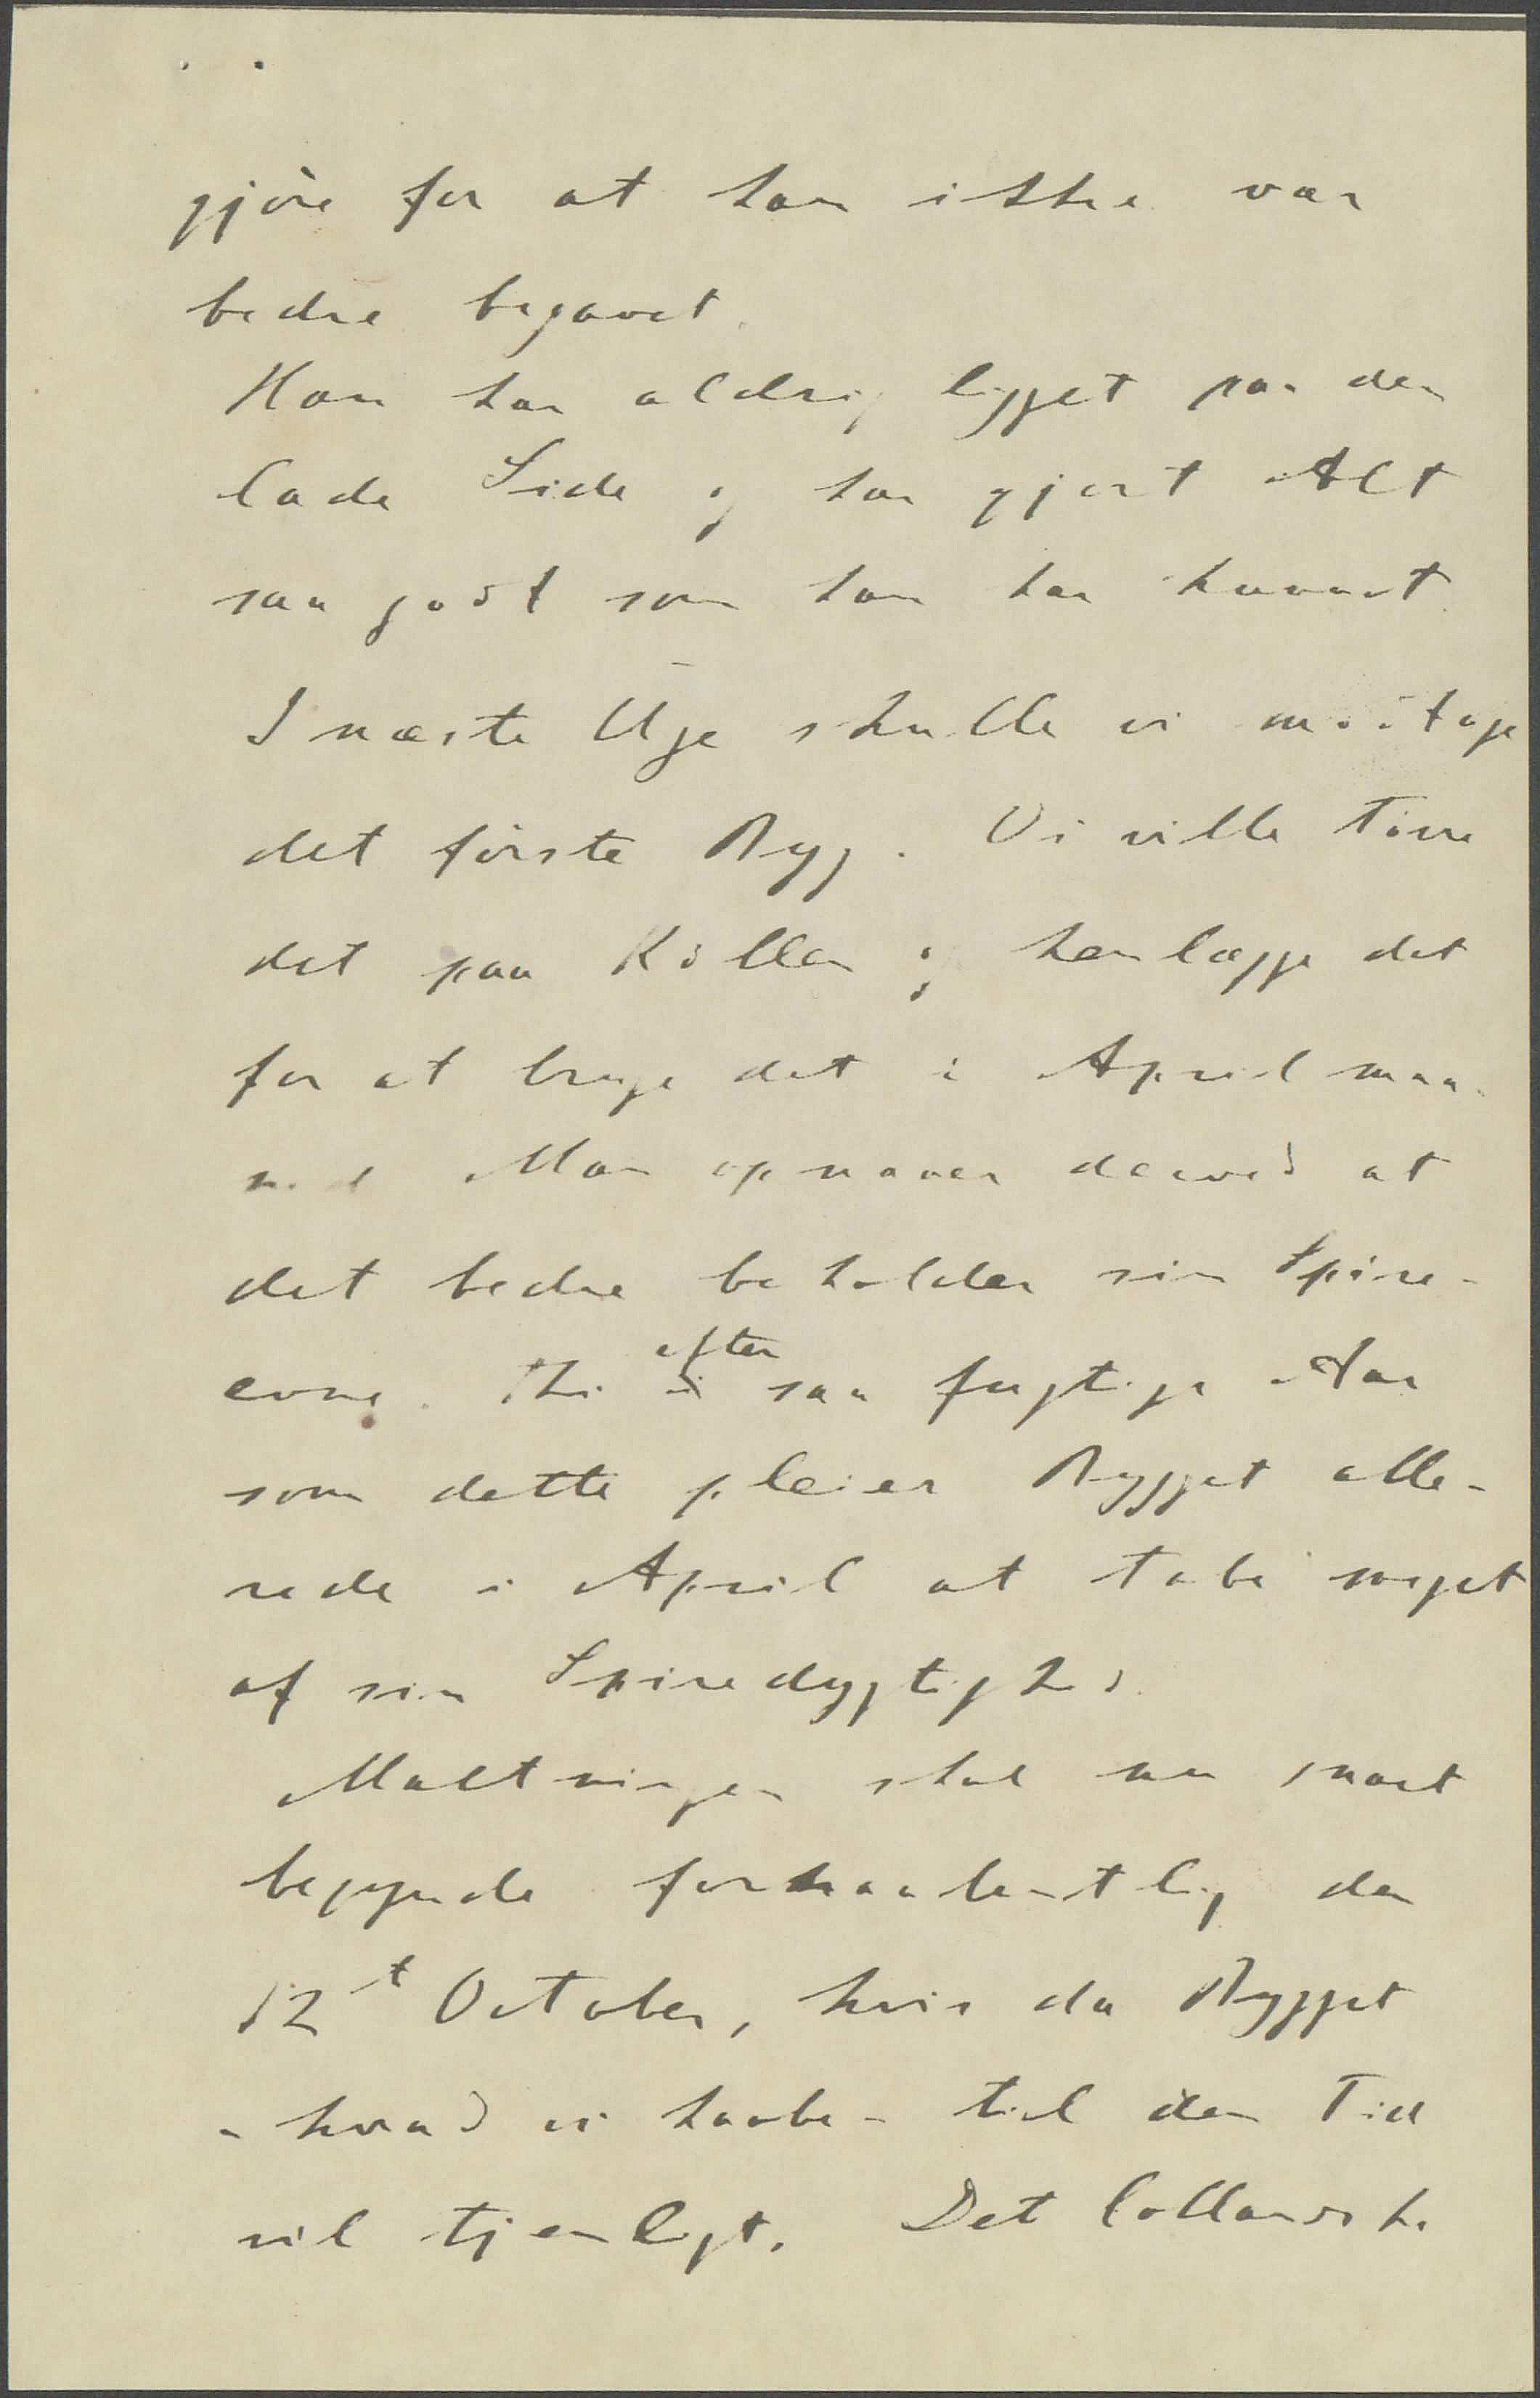 gjöre for at han ikke var
bedre begavet.
Han har aldrig ligget paa den
lade Side og har gjort Alt
saa godt som han har kunnet.
I næste Uge skulle vi modtage
det förste Byg. Vi ville törre
det paa Köllen og henlægge det
for at bruge det i April maa-
ned Man opnaaer derved at
det bedre beholder sin Spire-
evne. Thi i efter saa fugtige Aar
som dette pleier Bygget alle-
rede i April at tabe meget
af sin Spiredygtighed.
Maltningen skal nu snart
begynde forhaabentlig den
12t October, hvis da Bygget
- hvad vi haabe - til den Tid
vil tjenligt. Det lollandske